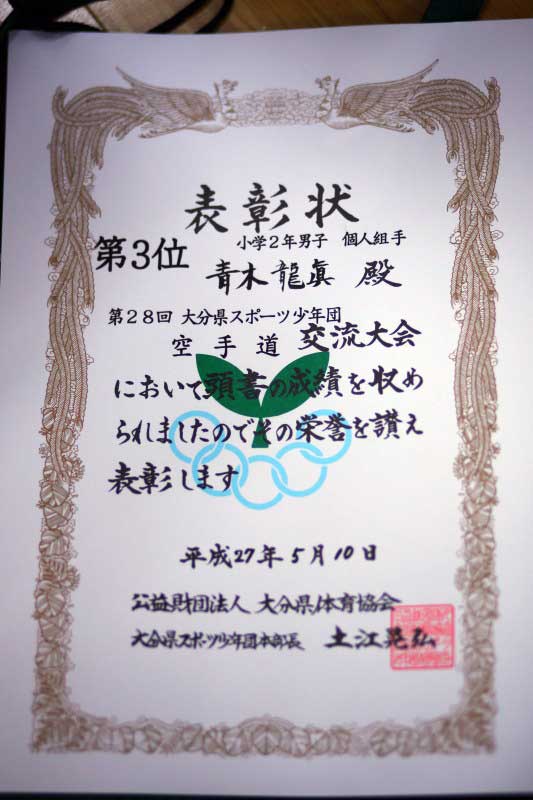 表彰状
小学2年男子 個人組手
第3位
青木龍眞 殿
第28回 大分県スポーツ少年団
空手道 交流大会
において頭書の成績を収め
られましたのでその栄誉を讃え
表彰します
平成27年5月10日
公益財団法人 大分県体育協会
大分県スポーツ少年団本部長 土江晃弘